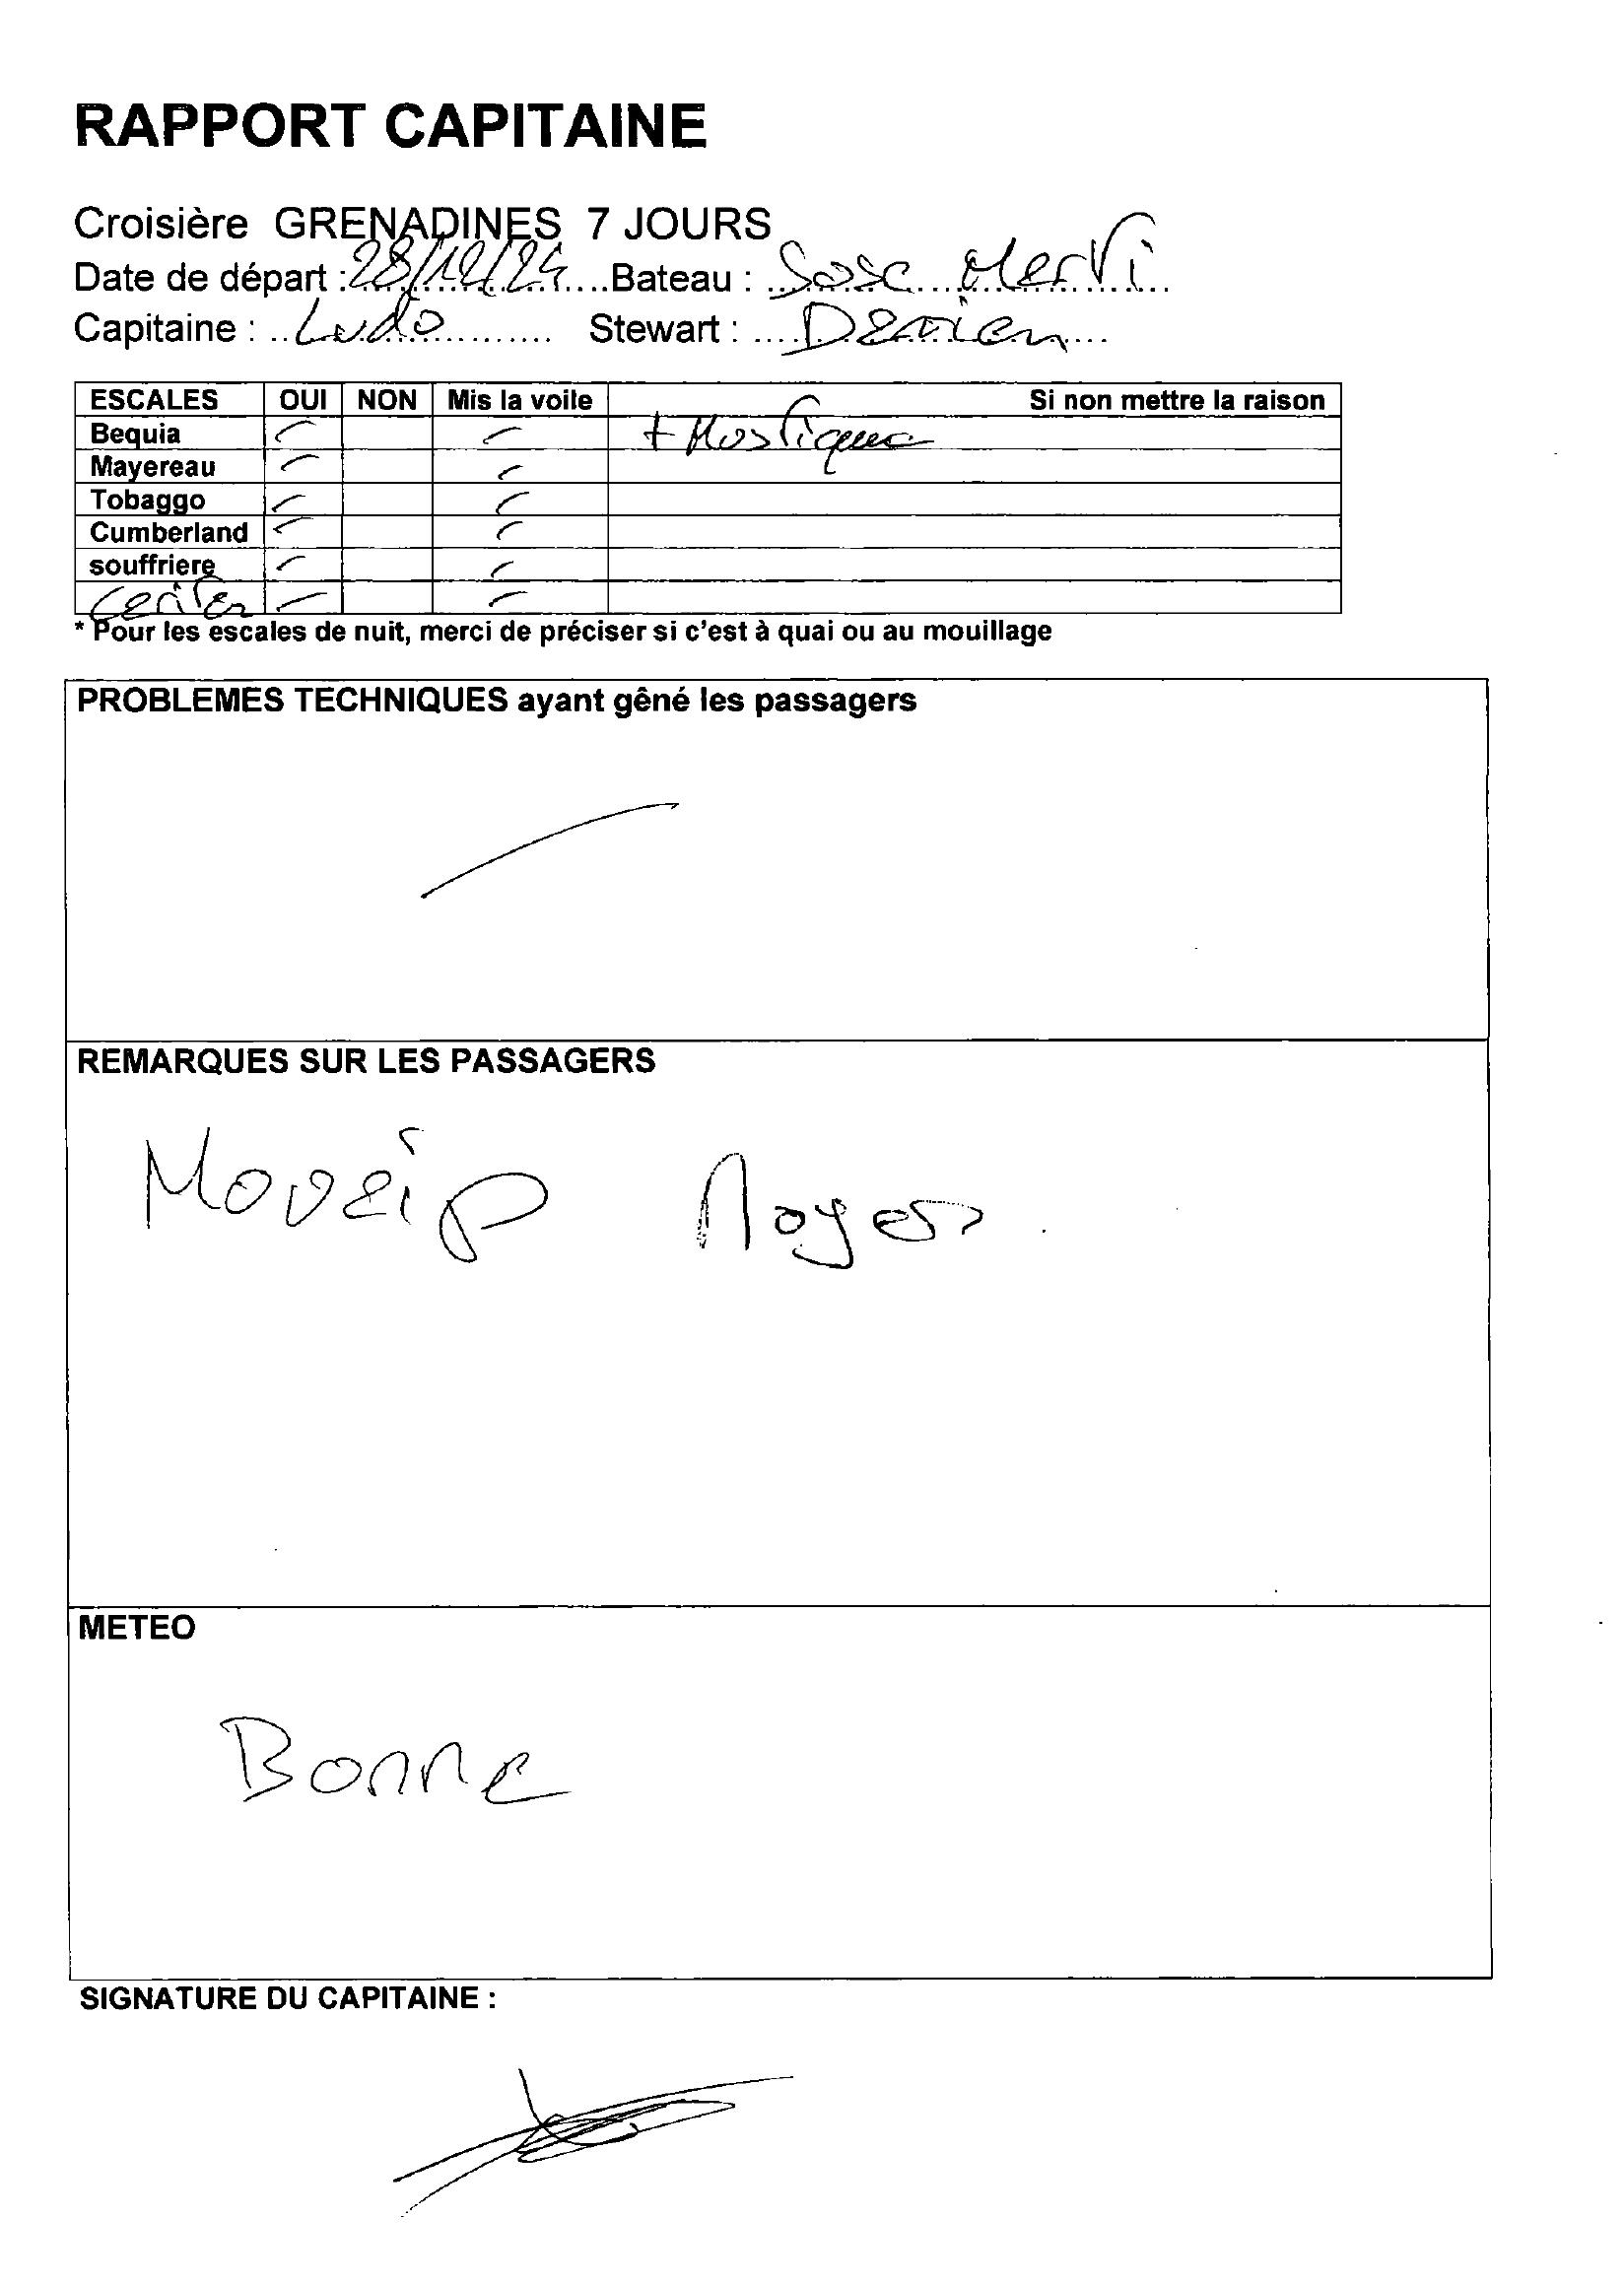 RAPPORT CAPITAINE
Croisière GRENADINES 7 JOURS
Date de départ : 28/12/24 Bateau :
Capitaine : Ludo Stewart : Damien
ESCALES OUI NON Mis la voile Si non mettre la raison
Bequia + Mostique
Mayereau
Tobaggo
Cumberland
souffriere
* Pour les escales de nuit, merci de préciser si c'est à quai ou au mouillage
PROBLEMES TECHNIQUES ayant gêné les passagers
REMARQUES SUR LES PASSAGERS
METEO
Bonne
SIGNATURE DU CAPITAINE :